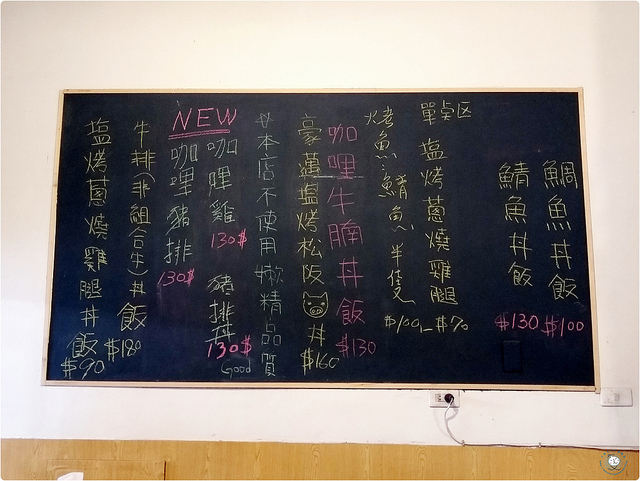 鯛魚丼飯 $100
鯖魚丼飯 $130
單點区
塩烤蔥燒雞腿 $70
烤魚:鯖魚半隻 $100
咖哩牛腩丼飯 $130
豪邁塩烤松阪丼 $160
#本店不使用嫩精品質 Good
NEW
咖哩雞 130$
豬排丼 130$
咖哩豬排 130$
牛排(非組合牛)丼飯 $180
塩烤蔥燒雞腿丼飯 $90